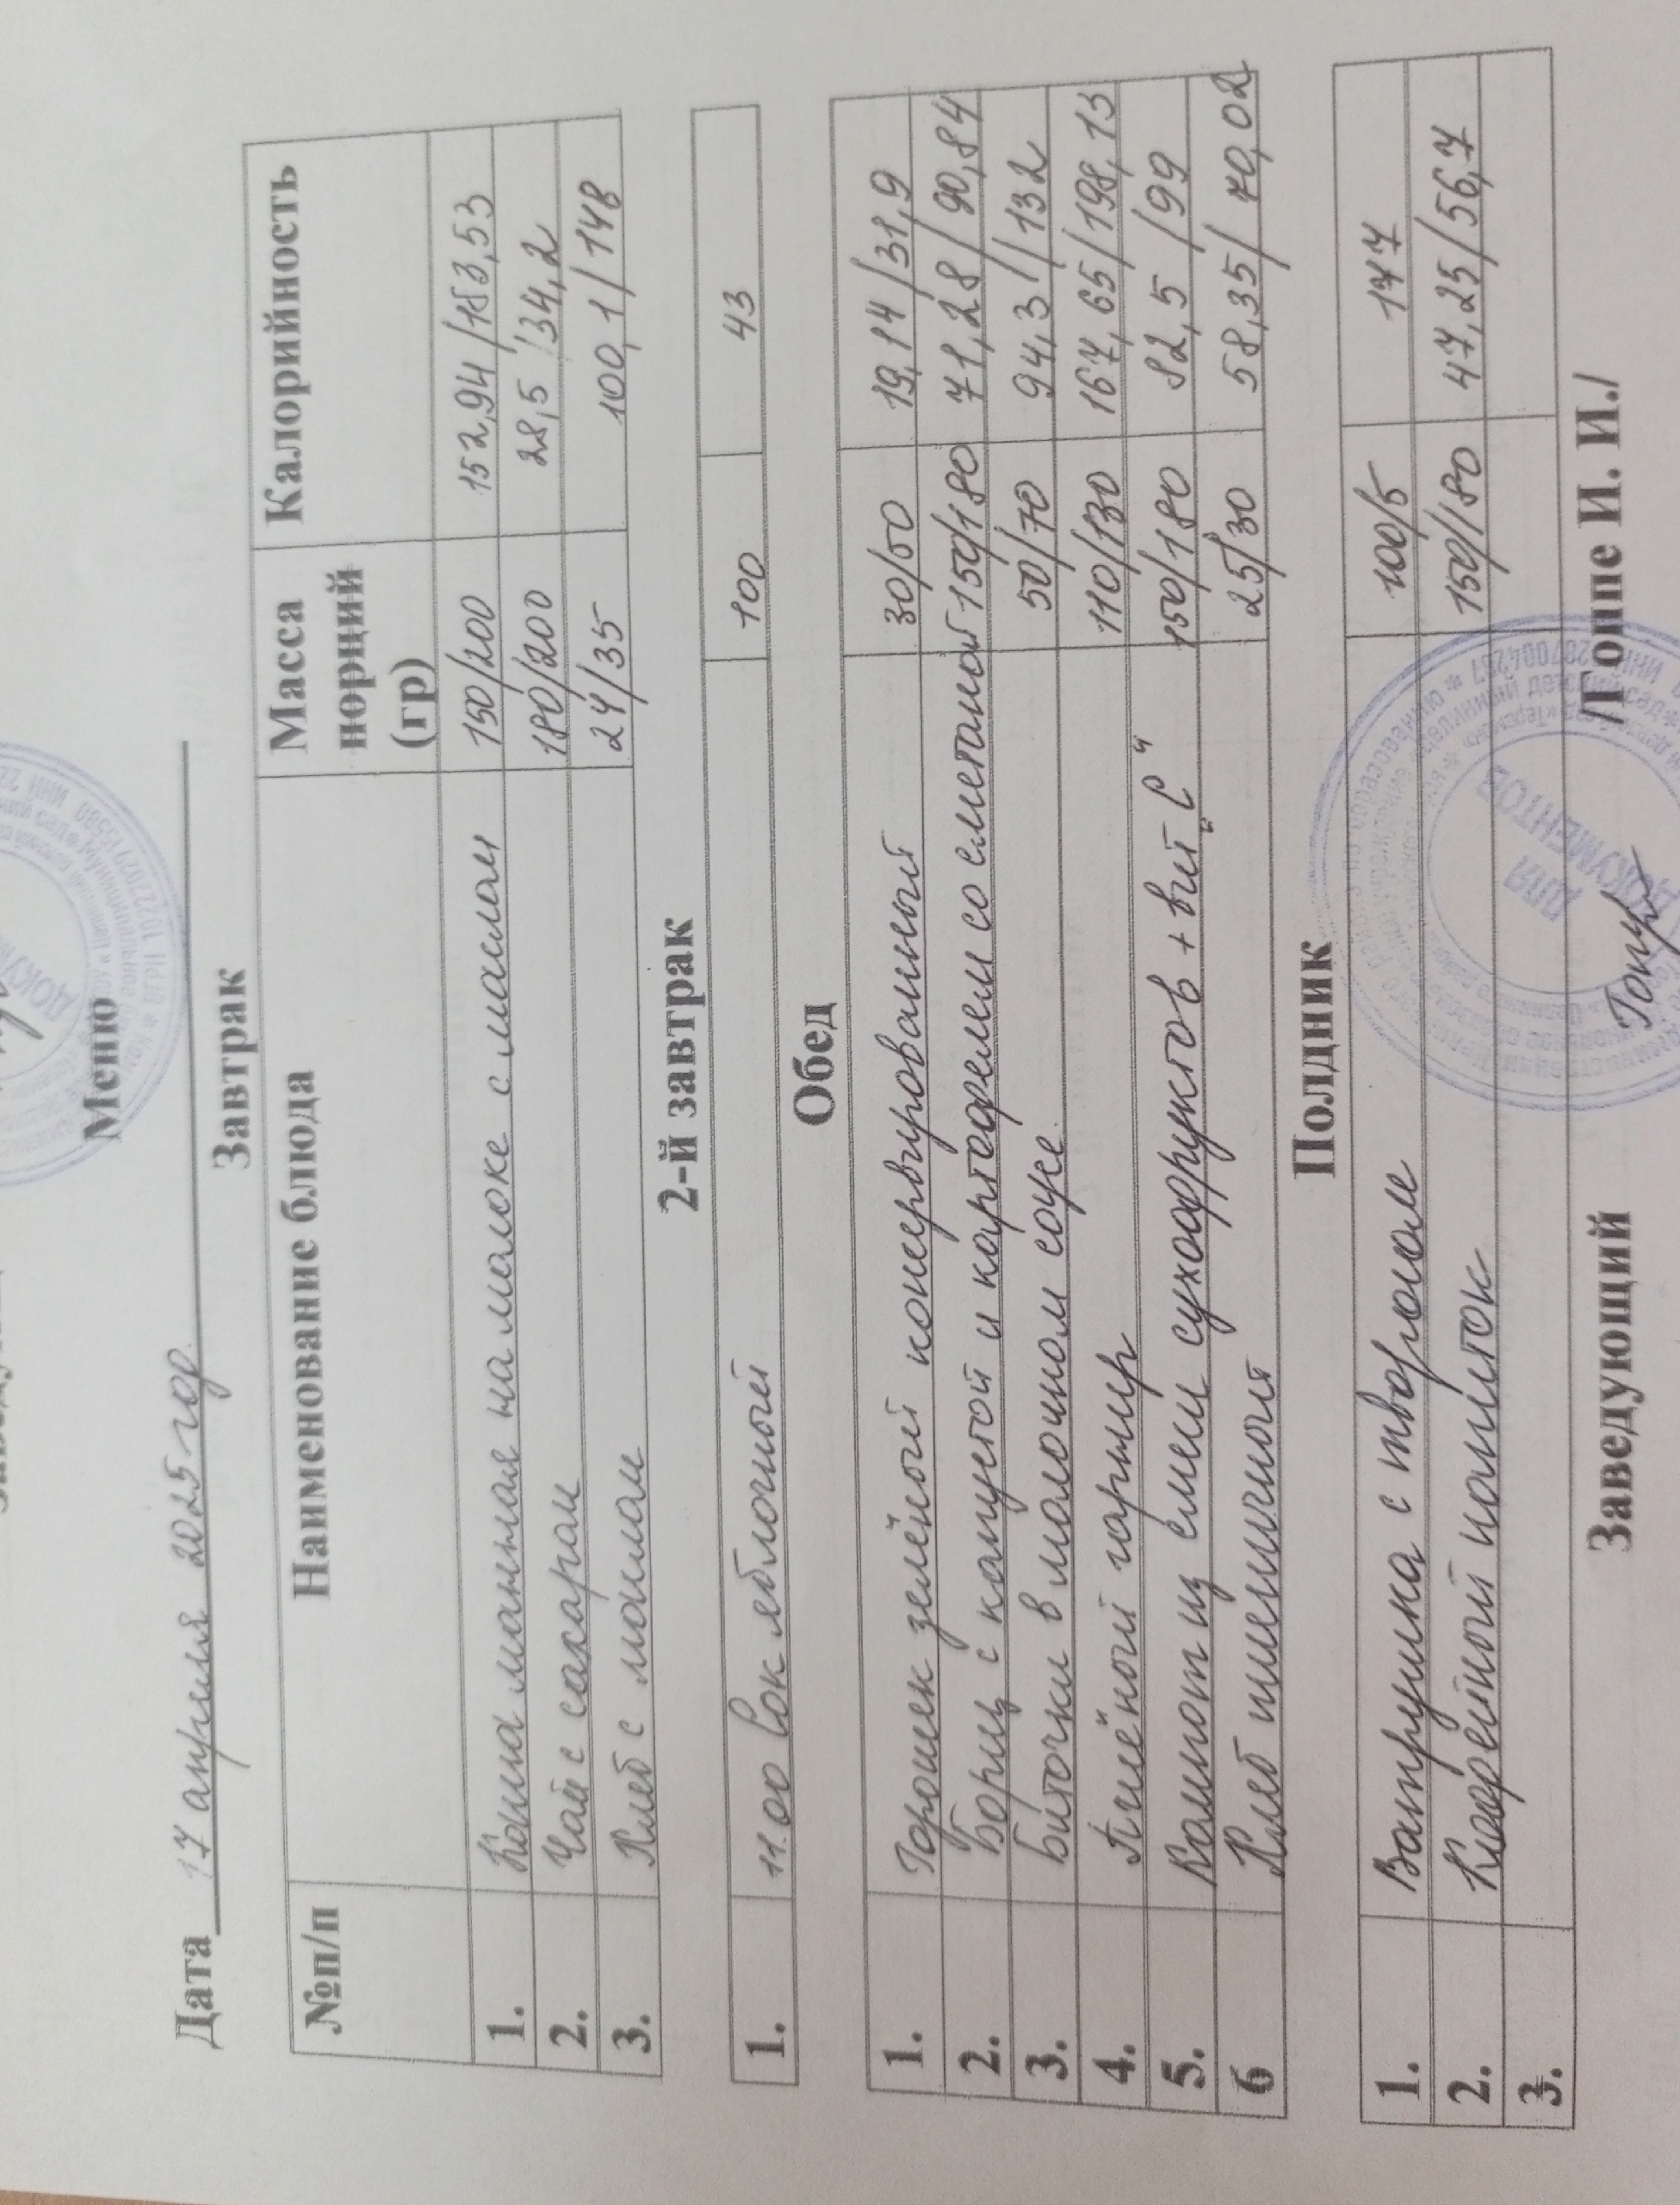 Меню
Дата 17 апреля 2025 год
Завтрак
№п/п Наименование блюда Масса порций (гр) Калорийность
1. Кашка манная на молоке с маслом 150/200 152,94/183,53
2. Чай с сахаром 180/200 28,5/34,2
3. Хлеб с маслом 24/35 100,1/148
2-й завтрак
1. 11.00 Сок яблочный 100 43
Обед
1. Горошек зелёный консервированный 30/50 19,14/31,9
2. Борщ с капустой и картофелем со сметаной 150/180 71,28/90,84
3. Биточки в молочном соусе 50/70 94,3/132
4. Пшённый гарнир 110/130 167,65/198,13
5. Компот из смеси сухофруктов + вит „С“ 150/180 82,5/99
6 Хлеб пшеничный 25/30 58,35/70,02
Полдник
1. Ватрушка с творогом 100/5 177
2. Кофейный напиток 150/180 47,25/56,7
3.
Заведующий /Топпе И. И./
ДЛЯ
ДОКУМЕНТОВ